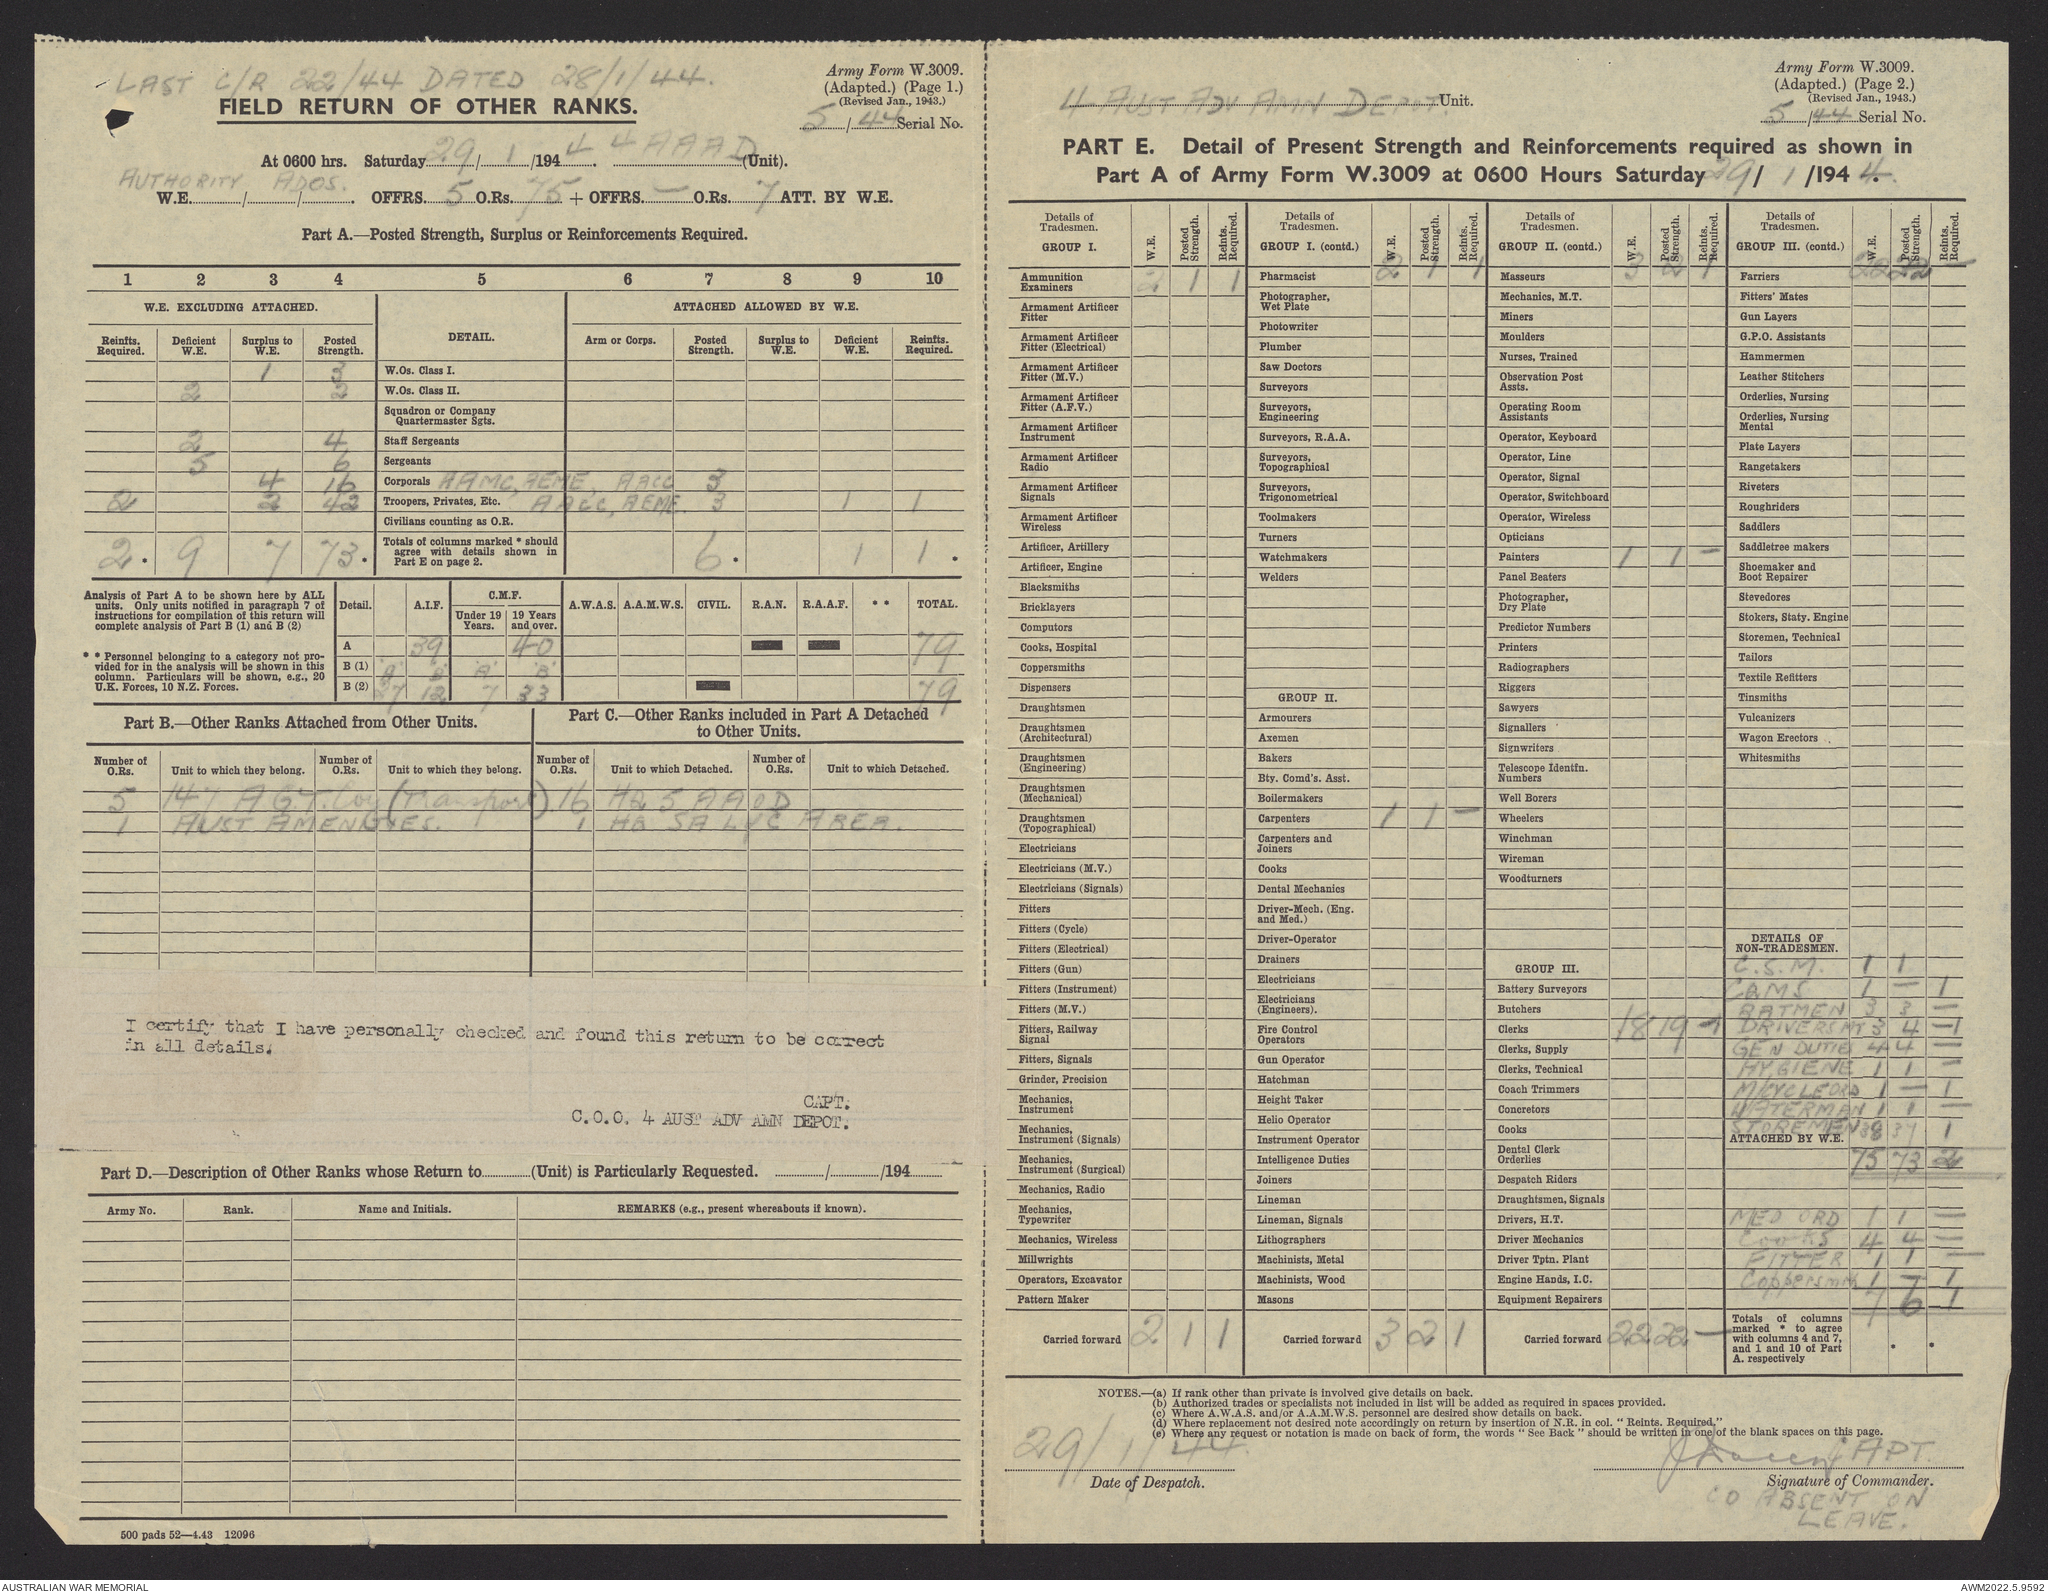 LAST C/R 22/44 DATED 28/1/44.
FIELD RETURN OF OTHER RANKS.
Army Form W.3009.
(Adapted.) (Page 1.)
(Revised Jan., 1943.)
5/44 Serial No.
At 0600 hrs. Saturday 29/1/1944. 4 AAAD (Unit).
AUTHORITY ADOS.
W.E. / / . OFFRS. 5 O.Rs. 75 + OFFRS. — O.Rs. 7 ATT. BY W.E.
Part A.—Posted Strength, Surplus or Reinforcements Required.
1 2 3 4 5 6 7 8 9 10
W.E. EXCLUDING ATTACHED. DETAIL. ATTACHED ALLOWED BY W.E.
Reinfts. Required. Deficient W.E. Surplus to W.E. Posted Strength. Arm or Corps. Posted Strength. Surplus to W.E. Deficient W.E. Reinfts. Required.
1 3 W.Os. Class I.
2 2 W.Os. Class II.
Squadron or Company Quartermaster Sgts.
2 4 Staff Sergeants
5 6 Sergeants
4 16 Corporals AAMC, AEME, AACC 3
2 2 42 Troopers, Privates, Etc. AACC, AEME. 3 1 1
Civilians counting as O.R.
2. 9 7 73. Totals of columns marked * should agree with details shown in Part E on page 2. 6. 1 1.
Analysis of Part A to be shown here by ALL units. Only units notified in paragraph 7 of instructions for compilation of this return will complete analysis of Part B (1) and B (2)
* * Personnel belonging to a category not provided for in the analysis will be shown in this column. Particulars will be shown, e.g., 20 U.K. Forces, 10 N.Z. Forces.
Detail. A.I.F. C.M.F. Under 19 Years. 19 Years and over. A.W.A.S. A.A.M.W.S. CIVIL. R.A.N. R.A.A.F. * * TOTAL.
A 39 40 79
B (1) 'A' 'B' 'A' 'B'
B (2) 27 12 7 33 79
Part B.—Other Ranks Attached from Other Units.
Part C.—Other Ranks included in Part A Detached to Other Units.
Number of O.Rs. Unit to which they belong. Number of O.Rs. Unit to which they belong. Number of O.Rs. Unit to which Detached. Number of O.Rs. Unit to which Detached.
5 147 AGT. Coy (Transport). 16 HQ 5 AAOD
1 AUST AMENITIES. 1 HQ SA L of C AREA.
I certify that I have personally checked and found this return to be correct
in all details.
CAPT.
C.O.O. 4 AUST ADV AMN DEPOT.
Part D.—Description of Other Ranks whose Return to (Unit) is Particularly Requested. / /194
Army No. Rank. Name and Initials. REMARKS (e.g., present whereabouts if known).
500 pads 52—4.43 12096
4 AUST ADV AMN DEPOT. Unit.
Army Form W.3009.
(Adapted.) (Page 2.)
(Revised Jan., 1943.)
5/44 Serial No.
PART E. Detail of Present Strength and Reinforcements required as shown in
Part A of Army Form W.3009 at 0600 Hours Saturday 29/1/1944.
Details of Tradesmen. GROUP I. W.E. Posted Strength. Reints. Required.
Ammunition Examiners 2 1 1
Armament Artificer Fitter
Armament Artificer Fitter (Electrical)
Armament Artificer Fitter (M.V.)
Armament Artificer Fitter (A.F.V.)
Armament Artificer Instrument
Armament Artificer Radio
Armament Artificer Signals
Armament Artificer Wireless
Artificer, Artillery
Artificer, Engine
Blacksmiths
Bricklayers
Computors
Cooks, Hospital
Coppersmiths
Dispensers
Draughtsmen
Draughtsmen (Architectural)
Draughtsmen (Engineering)
Draughtsmen (Mechanical)
Draughtsmen (Topographical)
Electricians
Electricians (M.V.)
Electricians (Signals)
Fitters
Fitters (Cycle)
Fitters (Electrical)
Fitters (Gun)
Fitters (Instrument)
Fitters (M.V.)
Fitters, Railway Signal
Fitters, Signals
Grinder, Precision
Mechanics, Instrument
Mechanics, Instrument (Signals)
Mechanics, Instrument (Surgical)
Mechanics, Radio
Mechanics, Typewriter
Mechanics, Wireless
Millwrights
Operators, Excavator
Pattern Maker
Carried forward 2 1 1
Details of Tradesmen. GROUP I. (contd.) W.E. Posted Strength. Reints. Required.
2 1 1
Pharmacist
Photographer, Wet Plate
Photowriter
Plumber
Saw Doctors
Surveyors
Surveyors, Engineering
Surveyors, R.A.A.
Surveyors, Topographical
Surveyors, Trigonometrical
Toolmakers
Turners
Watchmakers
Welders
GROUP II.
Armourers
Axemen
Bakers
Bty. Comd's. Asst.
Boilermakers
Carpenters 1 1 —
Carpenters and Joiners
Cooks
Dental Mechanics
Driver-Mech. (Eng. and Med.)
Driver-Operator
Drainers
Electricians
Electricians (Engineers).
Fire Control Operators
Gun Operator
Hatchman
Height Taker
Helio Operator
Instrument Operator
Intelligence Duties
Joiners
Lineman
Lineman, Signals
Lithographers
Machinists, Metal
Machinists, Wood
Masons
Carried forward 3 2 1
Details of Tradesmen. GROUP II. (contd.) W.E. Posted Strength. Reints. Required.
3 2 1
Masseurs
Mechanics, M.T.
Miners
Moulders
Nurses, Trained
Observation Post Assts.
Operating Room Assistants
Operator, Keyboard
Operator, Line
Operator, Signal
Operator, Switchboard
Operator, Wireless
Opticians
Painters 1 1 —
Panel Beaters
Photographer, Dry Plate
Predictor Numbers
Printers
Radiographers
Riggers
Sawyers
Signallers
Signwriters
Telescope Identfn. Numbers
Well Borers
Wheelers
Winchman
Wireman
Woodturners
GROUP III.
Battery Surveyors
Butchers
Clerks 18 19 -1
Clerks, Supply
Clerks, Technical
Coach Trimmers
Concretors
Cooks
Dental Clerk Orderlies
Despatch Riders
Draughtsmen, Signals
Drivers, H.T.
Driver Mechanics
Driver Tptn. Plant
Engine Hands, I.C.
Equipment Repairers
Carried forward 22 22 —
Details of Tradesmen. GROUP III. (contd.) W.E. Posted Strength. Reints. Required.
22 22 —
Farriers
Fitters' Mates
Gun Layers
G.P.O. Assistants
Hammermen
Leather Stitchers
Orderlies, Nursing
Orderlies, Nursing Mental
Plate Layers
Rangetakers
Riveters
Roughriders
Saddlers
Saddletree makers
Shoemaker and Boot Repairer
Stevedores
Stokers, Staty. Engine
Storemen, Technical
Tailors
Textile Refitters
Tinsmiths
Vulcanizers
Wagon Erectors
Whitesmiths
DETAILS OF NON-TRADESMEN.
C.S.M. 1 1
CQMS 1 — 1
BATMEN 3 3 —
DRIVERS MT 3 4 -1
GEN DUTIES 4 4 —
HYGIENE 1 1 —
M/CYCLE ORD 1 — 1
WATERMAN 1 1 —
STOREMEN 38 37 1
ATTACHED BY W.E.
75 73 2
MED ORD 1 1 —
COOKS 4 4 —
FITTER 1 1 —
Coppersmith 1 — 1
7 6 1
Totals of columns marked * to agree with columns 4 and 7, and 1 and 10 of Part A. respectively
NOTES.—(a) If rank other than private is involved give details on back.
(b) Authorized trades or specialists not included in list will be added as required in spaces provided.
(c) Where A.W.A.S. and/or A.A.M.W.S. personnel are desired show details on back.
(d) Where replacement not desired note accordingly on return by insertion of N.R. in col. "Reints. Required."
(e) Where any request or notation is made on back of form, the words "See Back" should be written in one of the blank spaces on this page.
29/1/44.
Date of Despatch.
CAPT.
Signature of Commander.
CO ABSENT ON
LEAVE.
AUSTRALIAN WAR MEMORIAL
AWM2022.5.9592